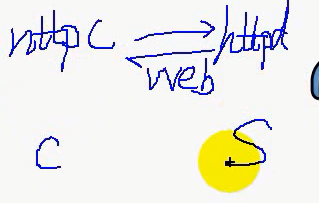 httpc httpd
web
C S